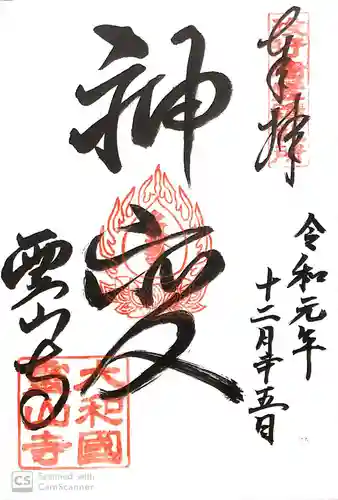 奉拝
令和元年
十二月廿五日
神変
霊山寺
大和國
霊山寺
CS Scanned with
CamScanner